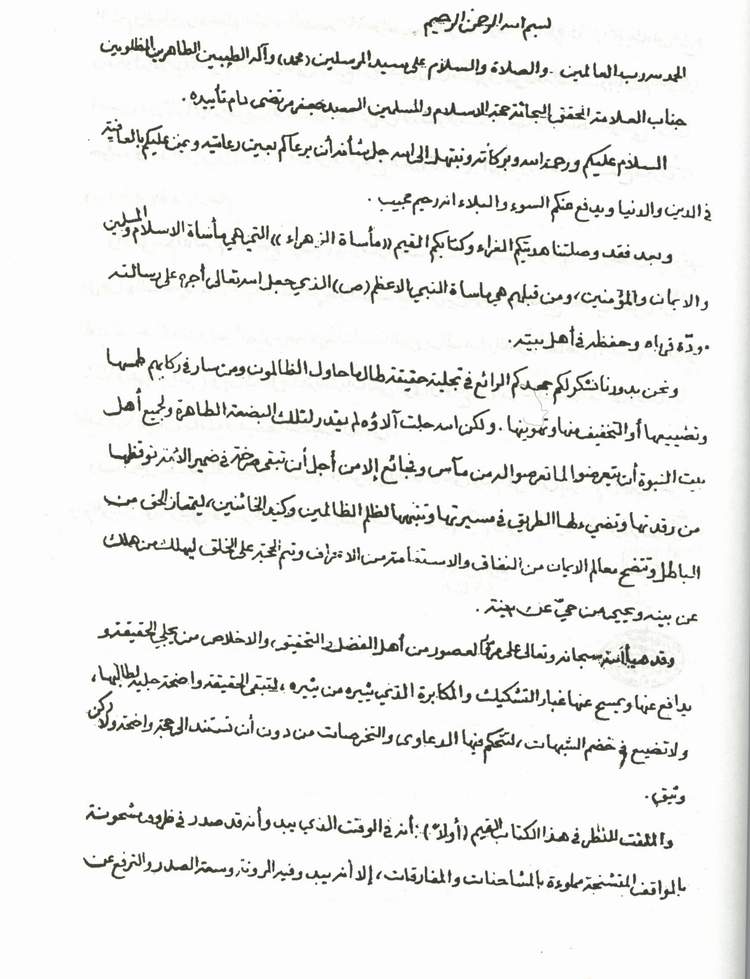 بسم الله الرحمن الرحيم
الحمد لله رب العالمين . والصلاة والسلام على سيد المرسلين (محمد) وآله الطيبين الطاهرين المظلومين
جناب العلامة المحقق البحاثة حجة الاسلام والمسلمين السيد جعفر مرتضى دام تأييده .
السلام عليكم ورحمة الله وبركاته ونبتهل الى الله جل شأنه أن يرعاكم بعين رعايته ويمن عليكم بالعافية
في الدين والدنيا ويدفع عنكم السوء والبلاء انه رحيم مجيب .
وبعد فقد وصلتنا هديتكم الغراء وكتابكم القيم ((مأساة الزهراء)) التي هي مأساة الاسلام والمسلمين
والايمان والمؤمنين، ومن قبلهم هي مأساة النبي الاعظم (ص) الذي جعل الله تعالى أجره على رسالته
مودّة قرباه وحفظه في أهل بيته .
ونحن بدورنا نشكر لكم جهدكم الرائع في تجلية حقيقة طالما حاول الظالمون ومن سار في ركابهم طمسها
وتضييعها أو التخفيف منها وتهوينها . ولكن الله جلت آلاؤه لم يقدر لتلك البضعة الطاهرة ولجميع أهل
بيت النبوة أن يتعرضوا لما تعرضوا له من مآسٍ وفجائع إلا من أجل أن تبقى صرخة في ضمير الأمة توقظها
من رقدتها وتضيء لها الطريق في مسيرتها وتنبهها لظلم الظالمين وكيد الخائنين، ليمتاز الحق من
الباطل وتتضح معالم الايمان من النفاق والاستقامة من الانحراف وتتم الحجة على الخلق ليهلك من هلك
عن بينة ويحيى من حيّ عن بينة .
وقد هيأ الله سبحانه وتعالى على مر العصور من أهل الفضل والتحقيق، والاخلاص من يجلي الحقيقة و
يدافع عنها ويمسح عنها غبار التشكيك والمكابرة الذي يثيره من يثيره، لتبقى الحقيقة واضحة جلية لطالبها،
ولا تضيع في خضم الشبهات، لتتحكم فيها الدعاوى والتخرصات من دون أن تستند الى حجة واضحة ولا ركن
وثيق .
والملفت للنظر في هذا الكتاب القيم (أولاً) : أنه في الوقت الذي يبدو أنه قد صدر في ظروف مشحونة
بالمواقف المتشنجة مملوءة بالمشاحنات والمفارقات، إلا أنه يبدو فيه المرونة وسعة الصدر والترفع عن